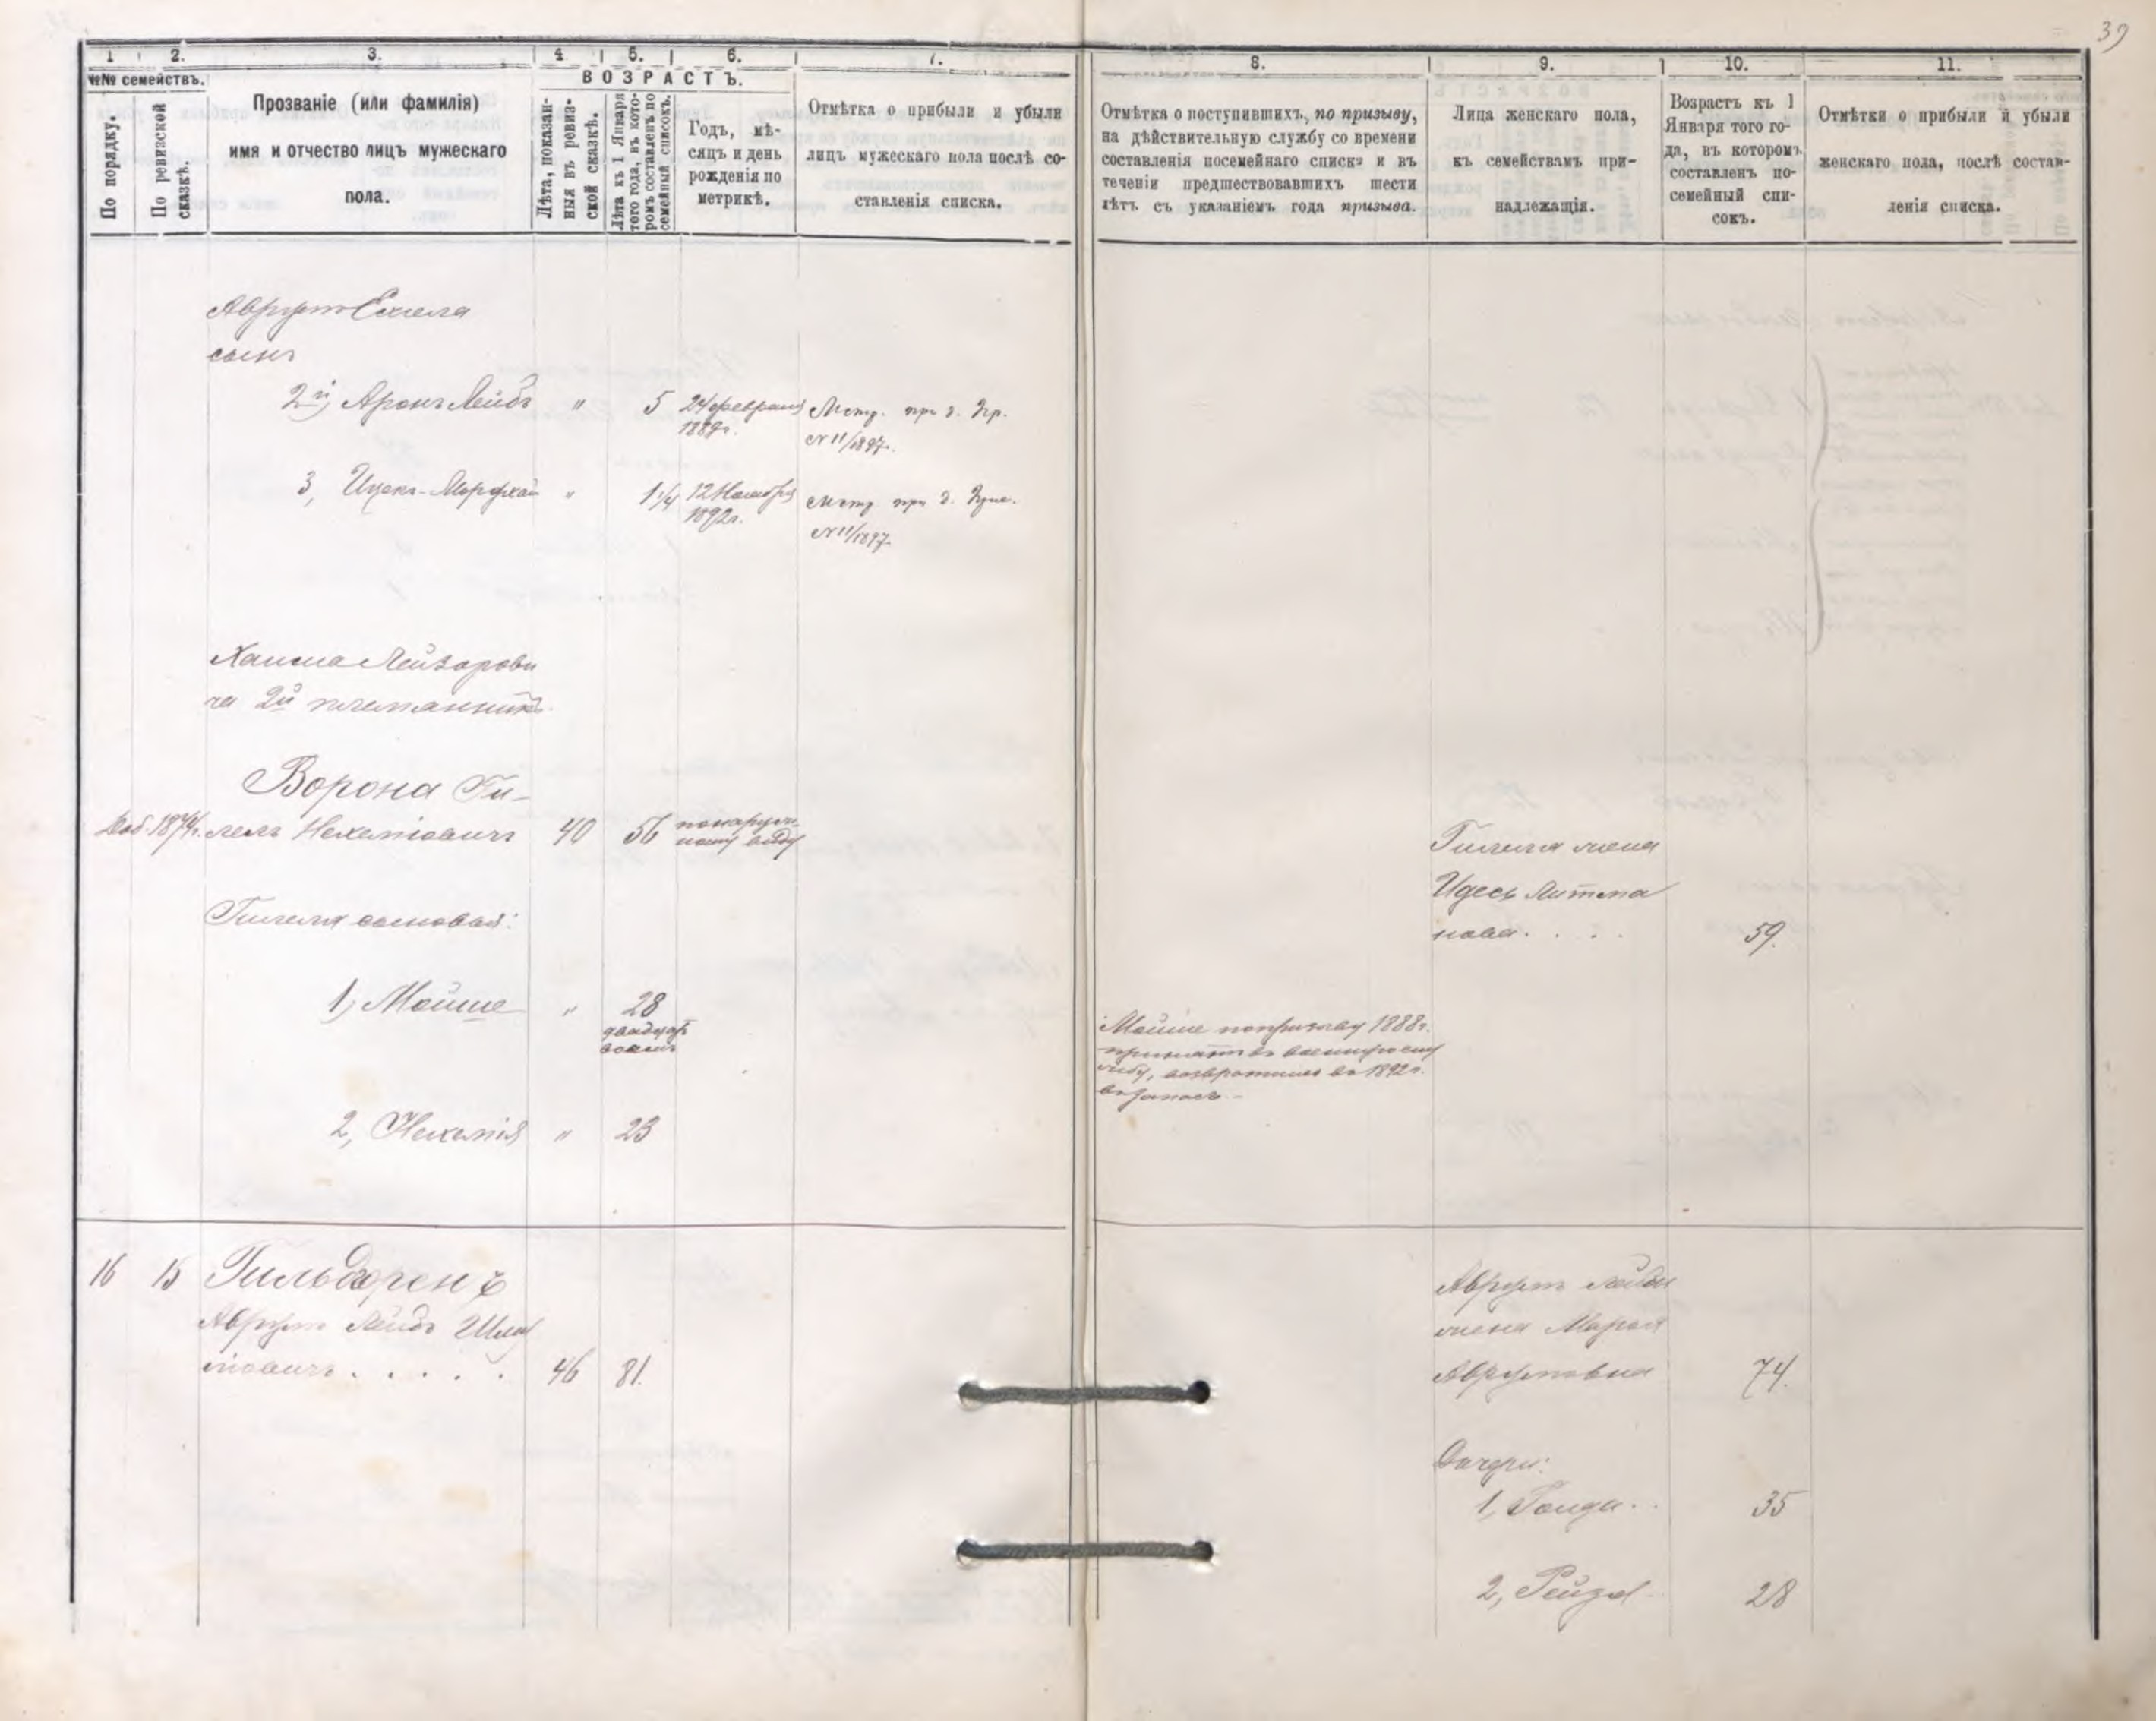 39
1
2.
3.
4
5.
6.
7.
№№ семействъ.
По порядку.
По ревизской
сказкѣ.
Прозваніе (или фамилія)
имя и отчество лицъ мужескаго
пола.
ВОЗРАСТЪ.
Лѣта, показан-
ныя въ ревиз-
ской сказкѣ.
Лѣта къ 1 Января
того года, въ кото-
ромъ составленъ по
семейный списокъ.
Годъ, мѣ-
сяцъ и день
рожденія по
метрикѣ.
Отмѣтка о прибыли и убыли
лицъ мужескаго пола послѣ со-
ставленія списка.
8.
9.
10.
11.
Отмѣтка о поступившихъ, по призыву,
на дѣйствительную службу со времени
составленія посемейнаго списка и въ
теченіи предшествовавшихъ шести
лѣтъ съ указаніемъ года призыва.
Лица женскаго пола,
къ семействамъ при-
надлежащія.
Возрастъ къ 1
Января того го-
да, въ которомъ
составленъ по-
семейный спи-
сокъ.
Отмѣтки о прибыли и убыли
женскаго пола, послѣ состав-
ленія списка.
Аврумъ Ехела
сынъ
2й, Аронъ Лейбъ " 5 24 февраля
1889г.
Метр. при д.
№ 11/1897.
3, Ицекъ-Мордхай " 1 1/4 12 Ноября
1892г.
Метр при д.
№ 11/1897
Хаима Лейзорови
ча 2й племянникъ.
Ворона Ги-
1874г. лель Нехеміовичъ 40 56 по наруж-
ному виду
Гилеля жена
Идесь Литма
нова. . . . 59.
Гилеля сыновья:
1, Мойше " 28
двадцать
восемь
Мойше по призыву 1888г.
принятъ въ военную слу
жбу, возвратился въ 1892г.
въ запасъ.-
2, Нехемія " 23
16 15 Гильдгренъ
Аврумъ Лейбъ Шлі
міовичъ. . . . . 46 81.
Аврумъ Лейби
жена Марья
Аврумовна 74.
Дочери:
1, Голда. . 35
2, Рейзя 28